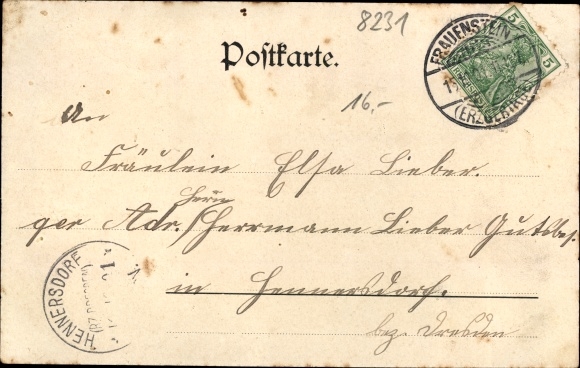 8231
Postkarte.
FRAUENSTEIN
(ERZGEBIRGE)
5 5
16,-
An
Fräulein Elsa Lieber.
Herrn
per Adr. Herrmann Lieber Gutsbes.
in Hennersdorf.
bez. Dresden
HENNERSDORF
(BZ. DRESDEN)